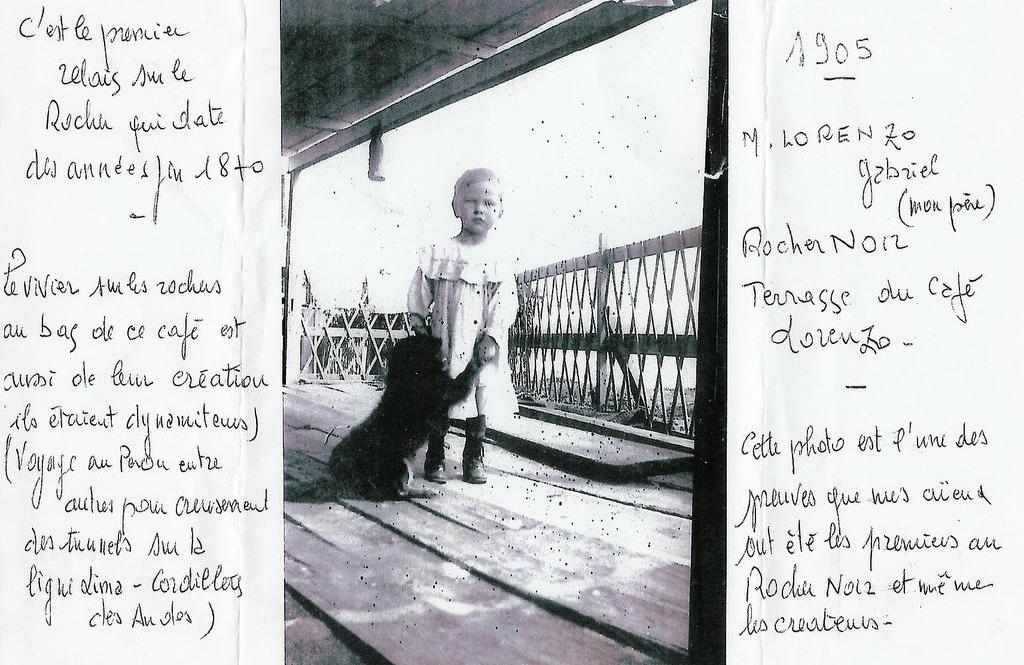 C'est le premier
relais sur le
Rocher qui date
des années fin 1870
-
Le vivier sur les rochers
au bas de ce café est
aussi de leur création
ils étaient dynamiteurs)
(Voyage au Pérou entre
autres pour creusement
des tunnels sur la
ligne Lima - Cordillers
des Andes)
1905
M. LORENZO
Gabriel
(mon père)
Rocher NOIR
Terrasse du Café
Lorenzo -
-
Cette photo est l'une des
preuves que mes aïeux
ont été les premiers au
Rocher NOIR et même
les createurs -